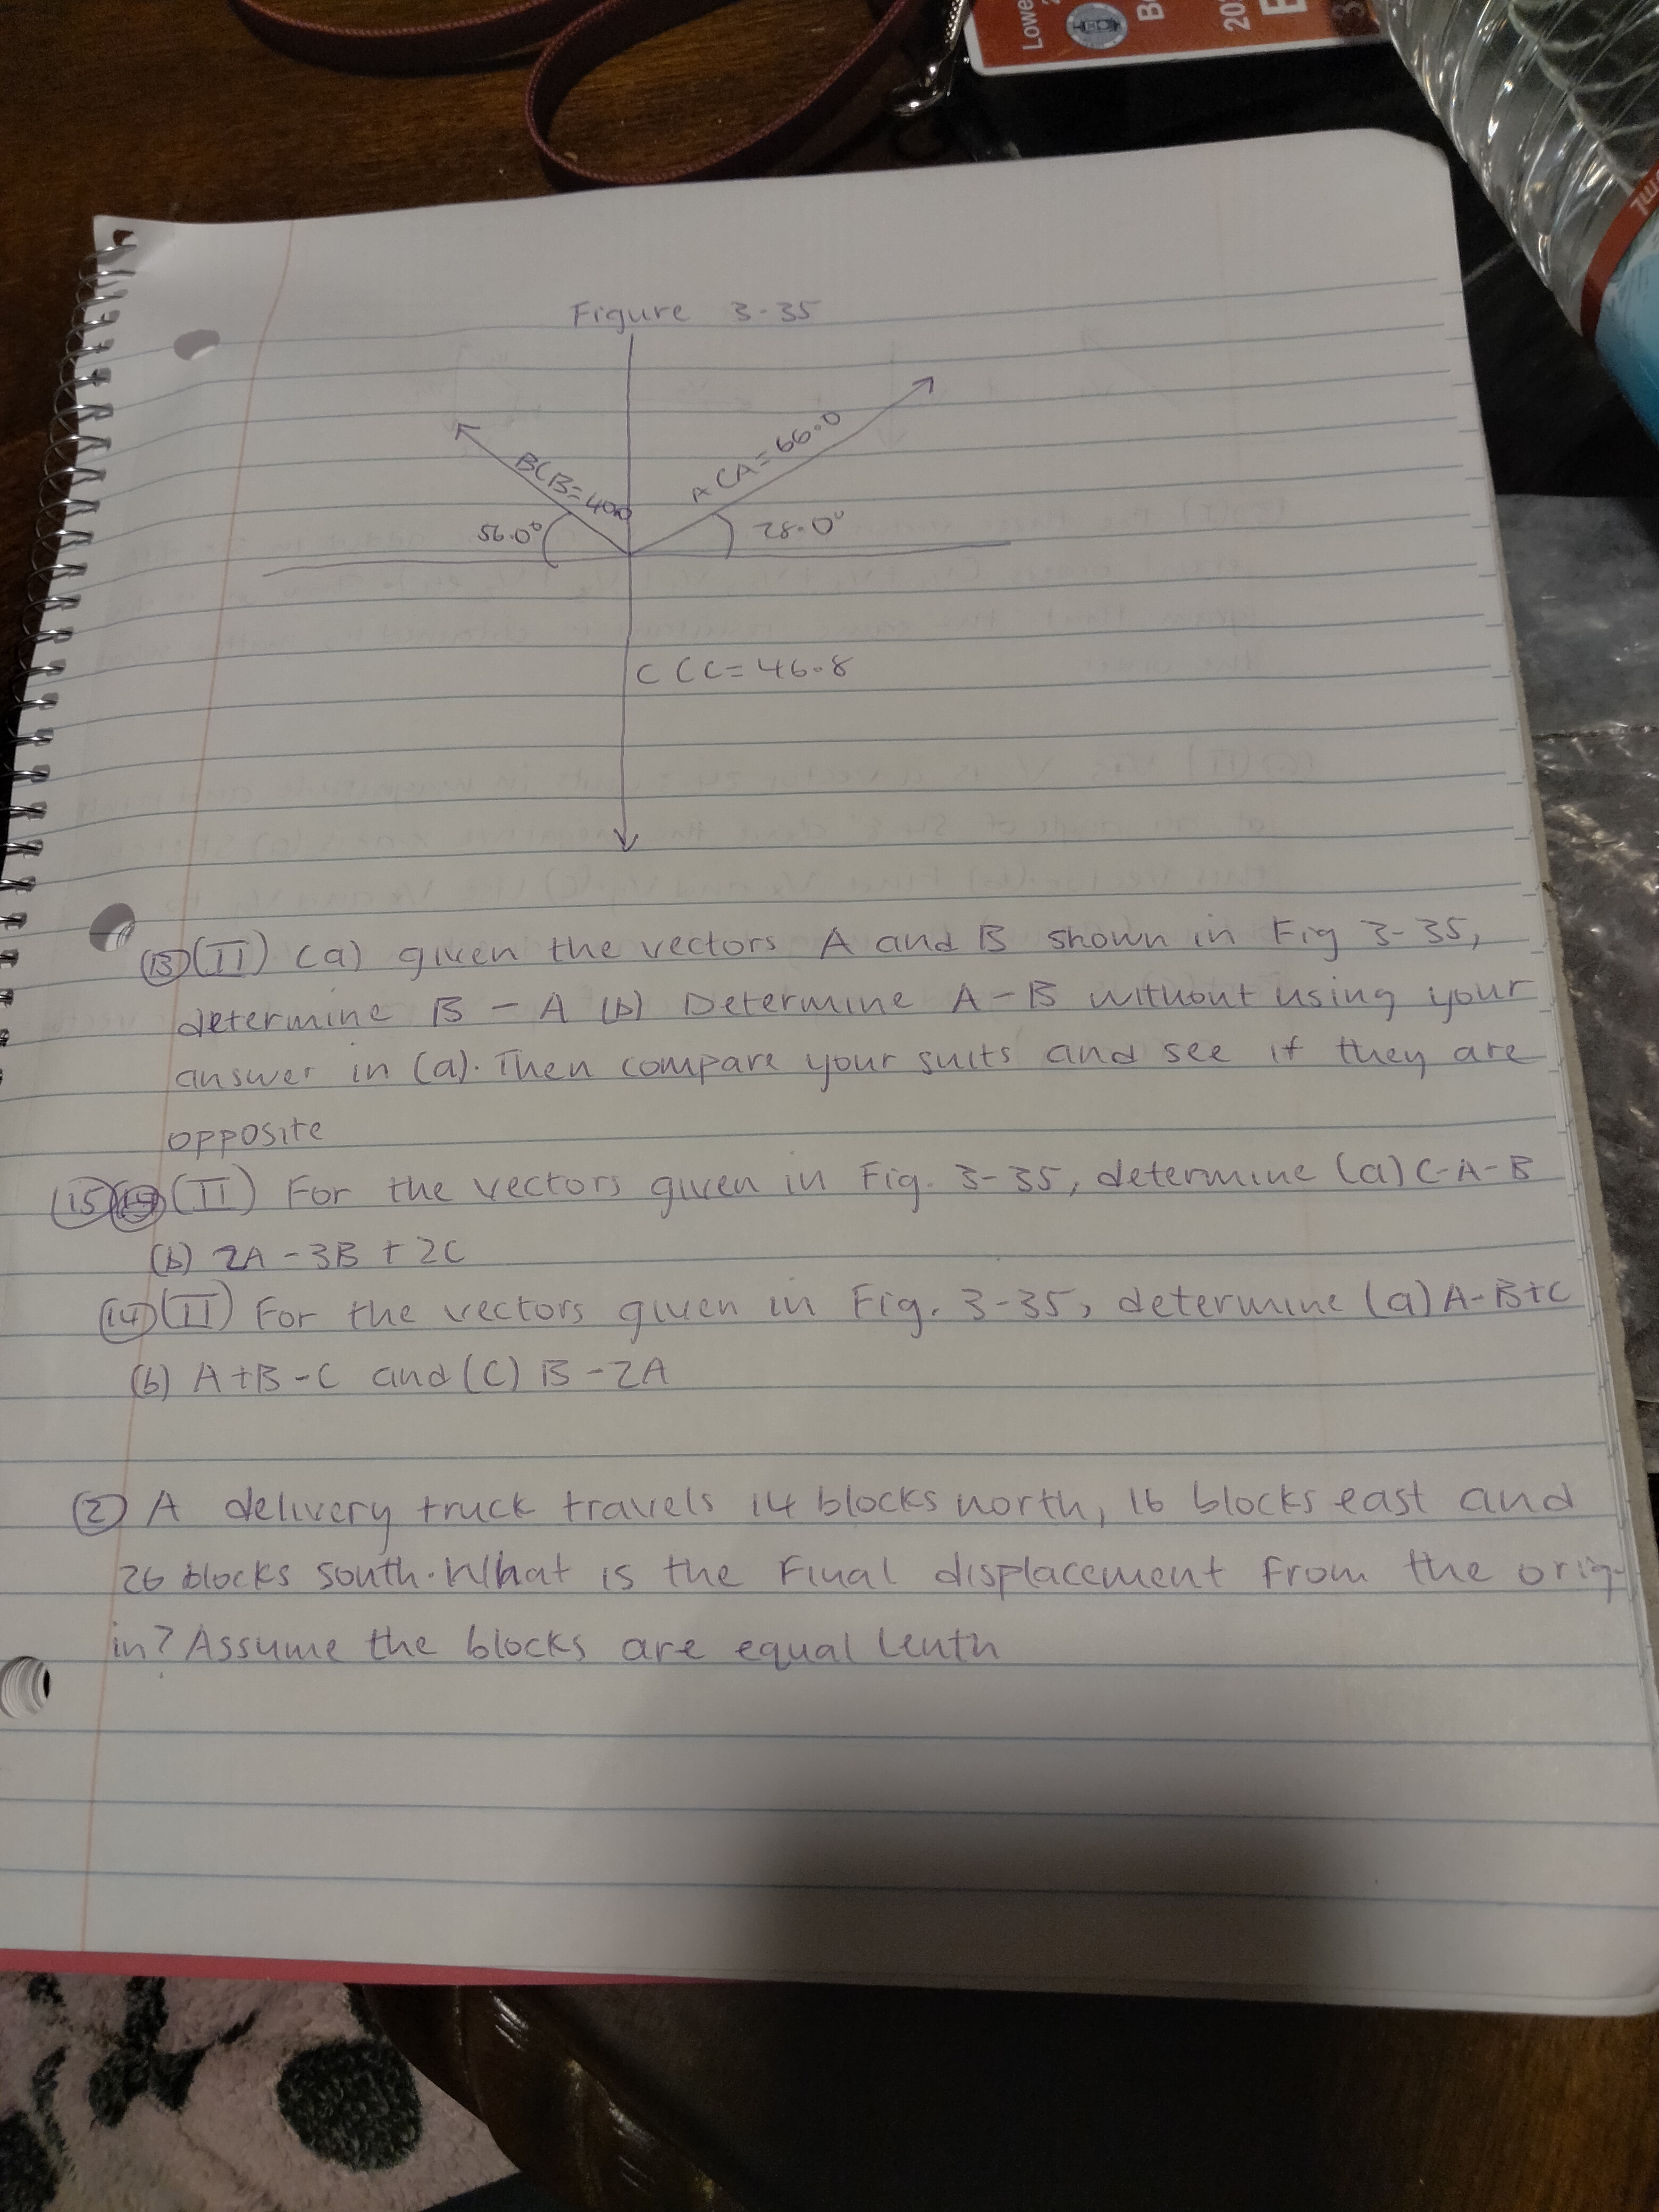 Lowe
B
20
E
3
Figure 3-35
B(B=40.0
A (A=66.0
56.0°
28.0°
C (C=46.8
(13) (II) (a) given the vectors A and B shown in Fig 3-35,
determine B - A (b) Determine A-B without using your
answer in (a). Then compare your suits and see if they are
opposite
(15) (II) For the vectors given in Fig. 3-35, determine (a) C-A-B
(b) 2A-3B+2C
(14) (II) For the vectors given in Fig. 3-35, determine (a) A-B+C
(b) A+B-C and (C) B-2A
(2) A delivery truck travels 14 blocks north, 16 blocks east and
26 blocks south. What is the Final displacement from the orig-
in? Assume the blocks are equal lenth